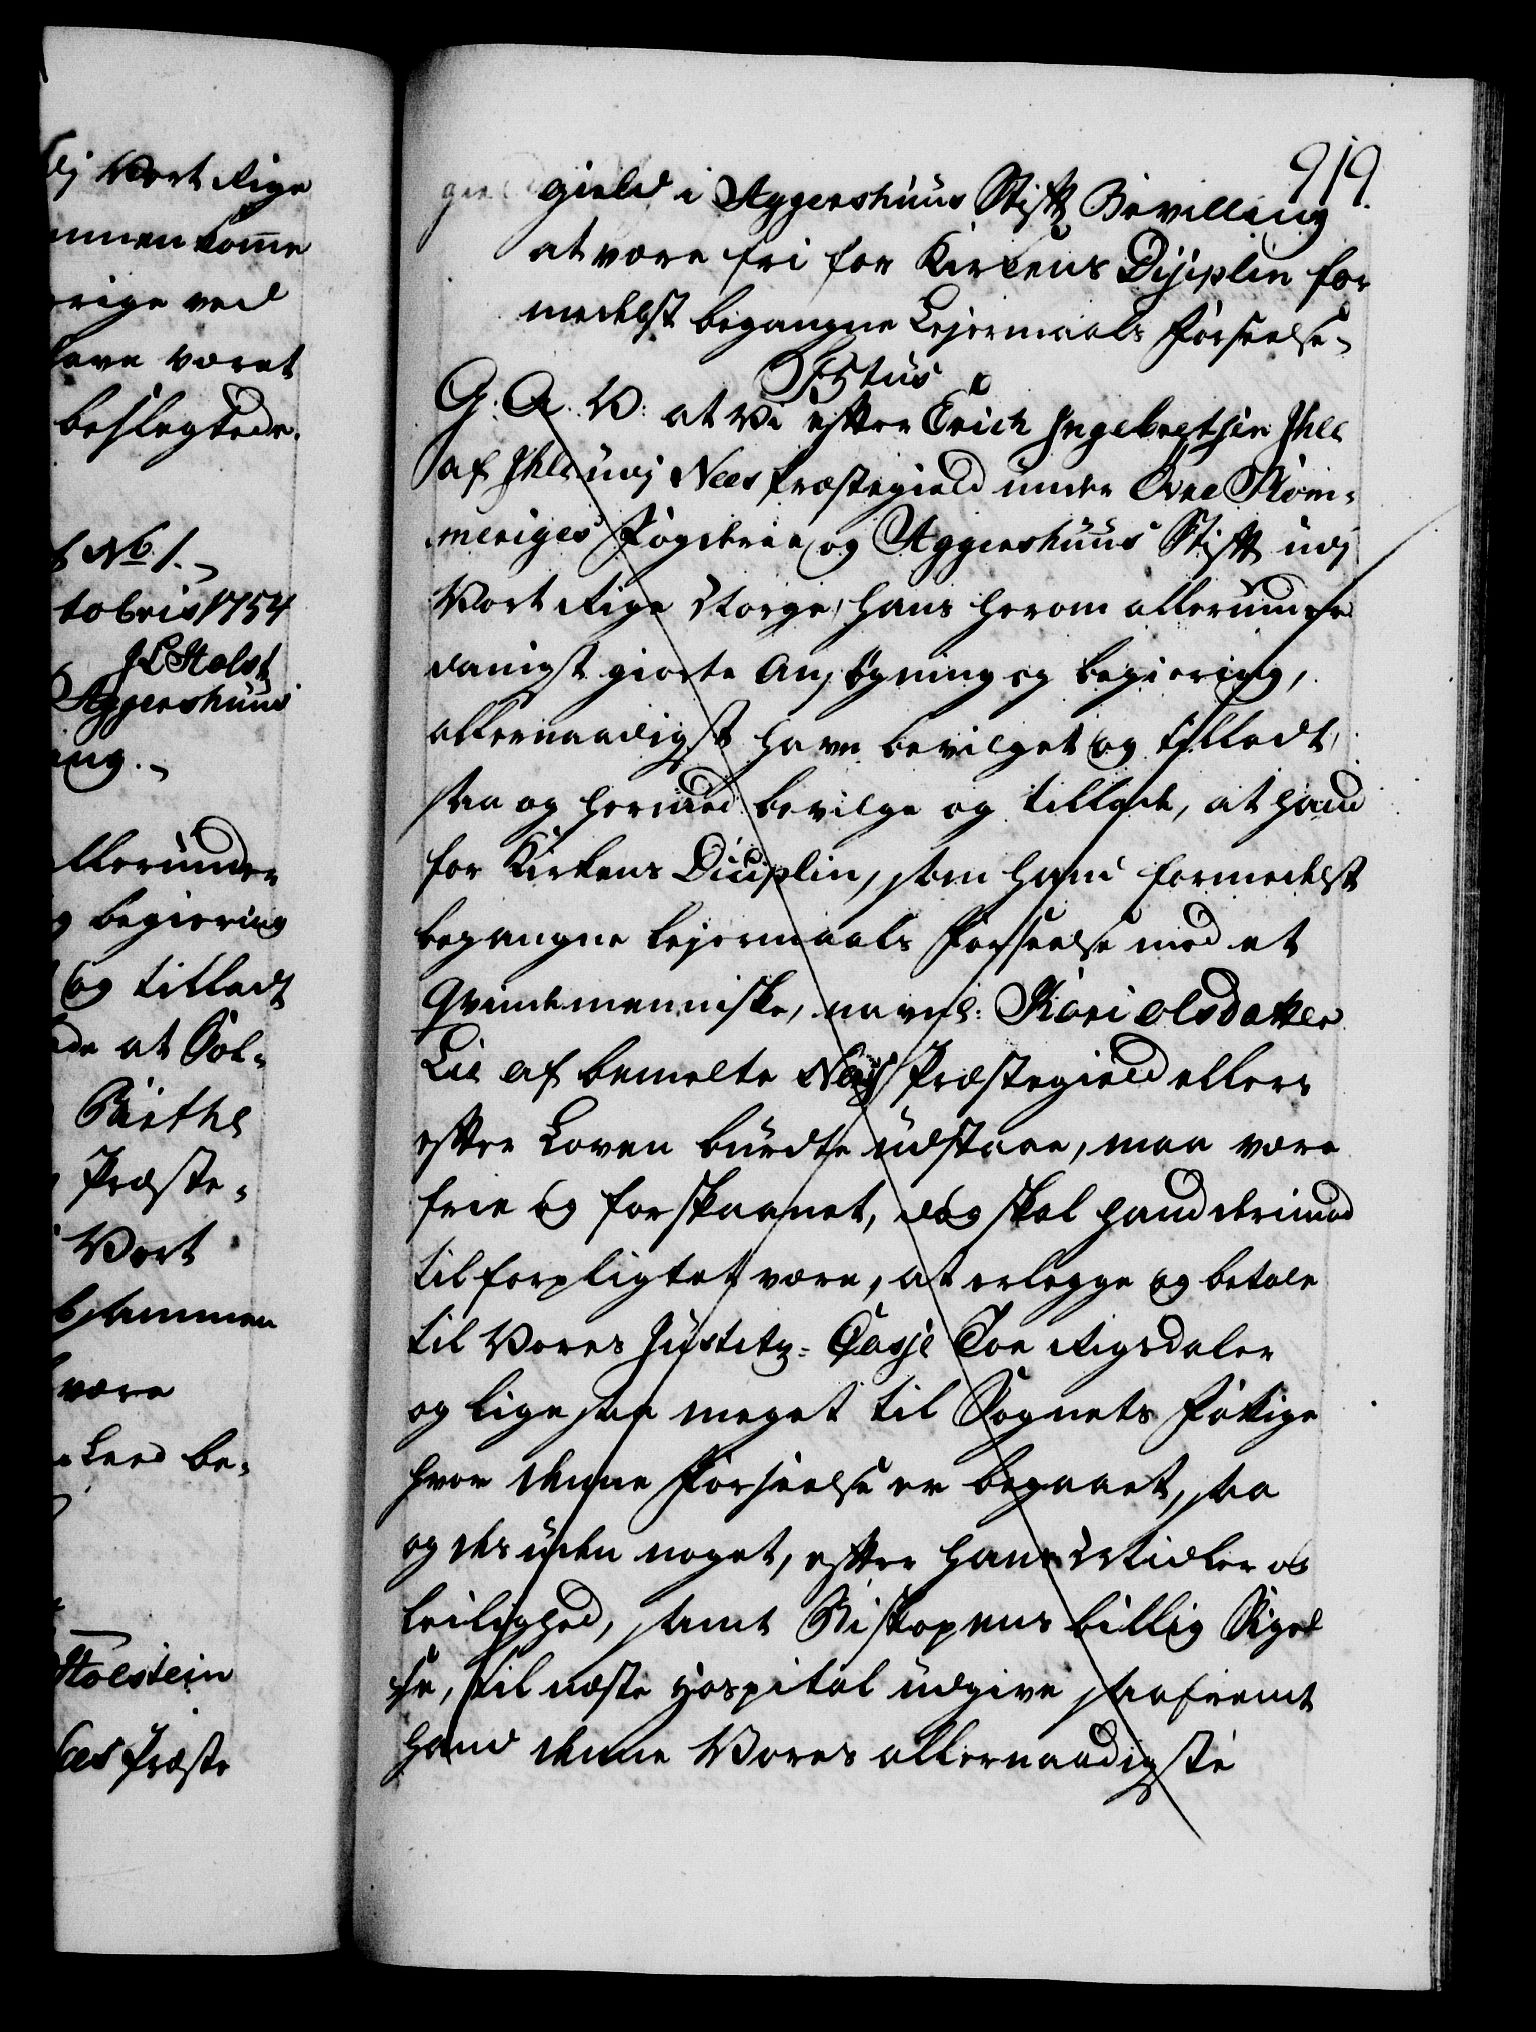 dj Vort Rige
ammen komme
rige ved
have været
beslegtede.
No 1.
tobris 1754
J L Holst
Aggershuus
ing.
allerunder
begiering
og tilladt
de at Sol-
Birthe
Præste-
Vort
sammen
være
Leed be-
Holstein
Præste
919.
gield i Aggershuus Stift Bevilling
at være fri for Kirkens Disciplin for
medelst begangne Lejermaals Forseelse.
F5tus
G. A. V. at Vi efter Erich Ingebretsen Ihle
af Ihle udj Nees Præstegield under Øvre Rom-
meriges Fogderie og Aggershuus Stift udj
Vort Rige Norge, hans herom allerunder
danigst giorte Ansøgning og begiering,
allernaadigst have bevilget og tilladt,
saa og hermed bevilge og tillade, at hand
for Kirkens Diciplin, som hand formedelst
begangne Lejermaals Forseelse med et
Qvindemenniske, navnl: Kari Olsdatter
Lie af bemelte Næs Præstegield ellers
efter Loven burdte udstaae, maa være
frie og forskaanet, dog skal hand derimod
tilforpligtet være, at erlegge og betale
til Vores Justitz-Casse Toe Rigsdaler
og lige saa meget til Sognets Fattige
hvor denne Forseelse er begaaet, saa
og desuden noget, efter hans Midler og
leilighed, samt Biskopens billig Sigel
se, til næste Hospital udgive saafremt
hand denne Vores allernaadigste